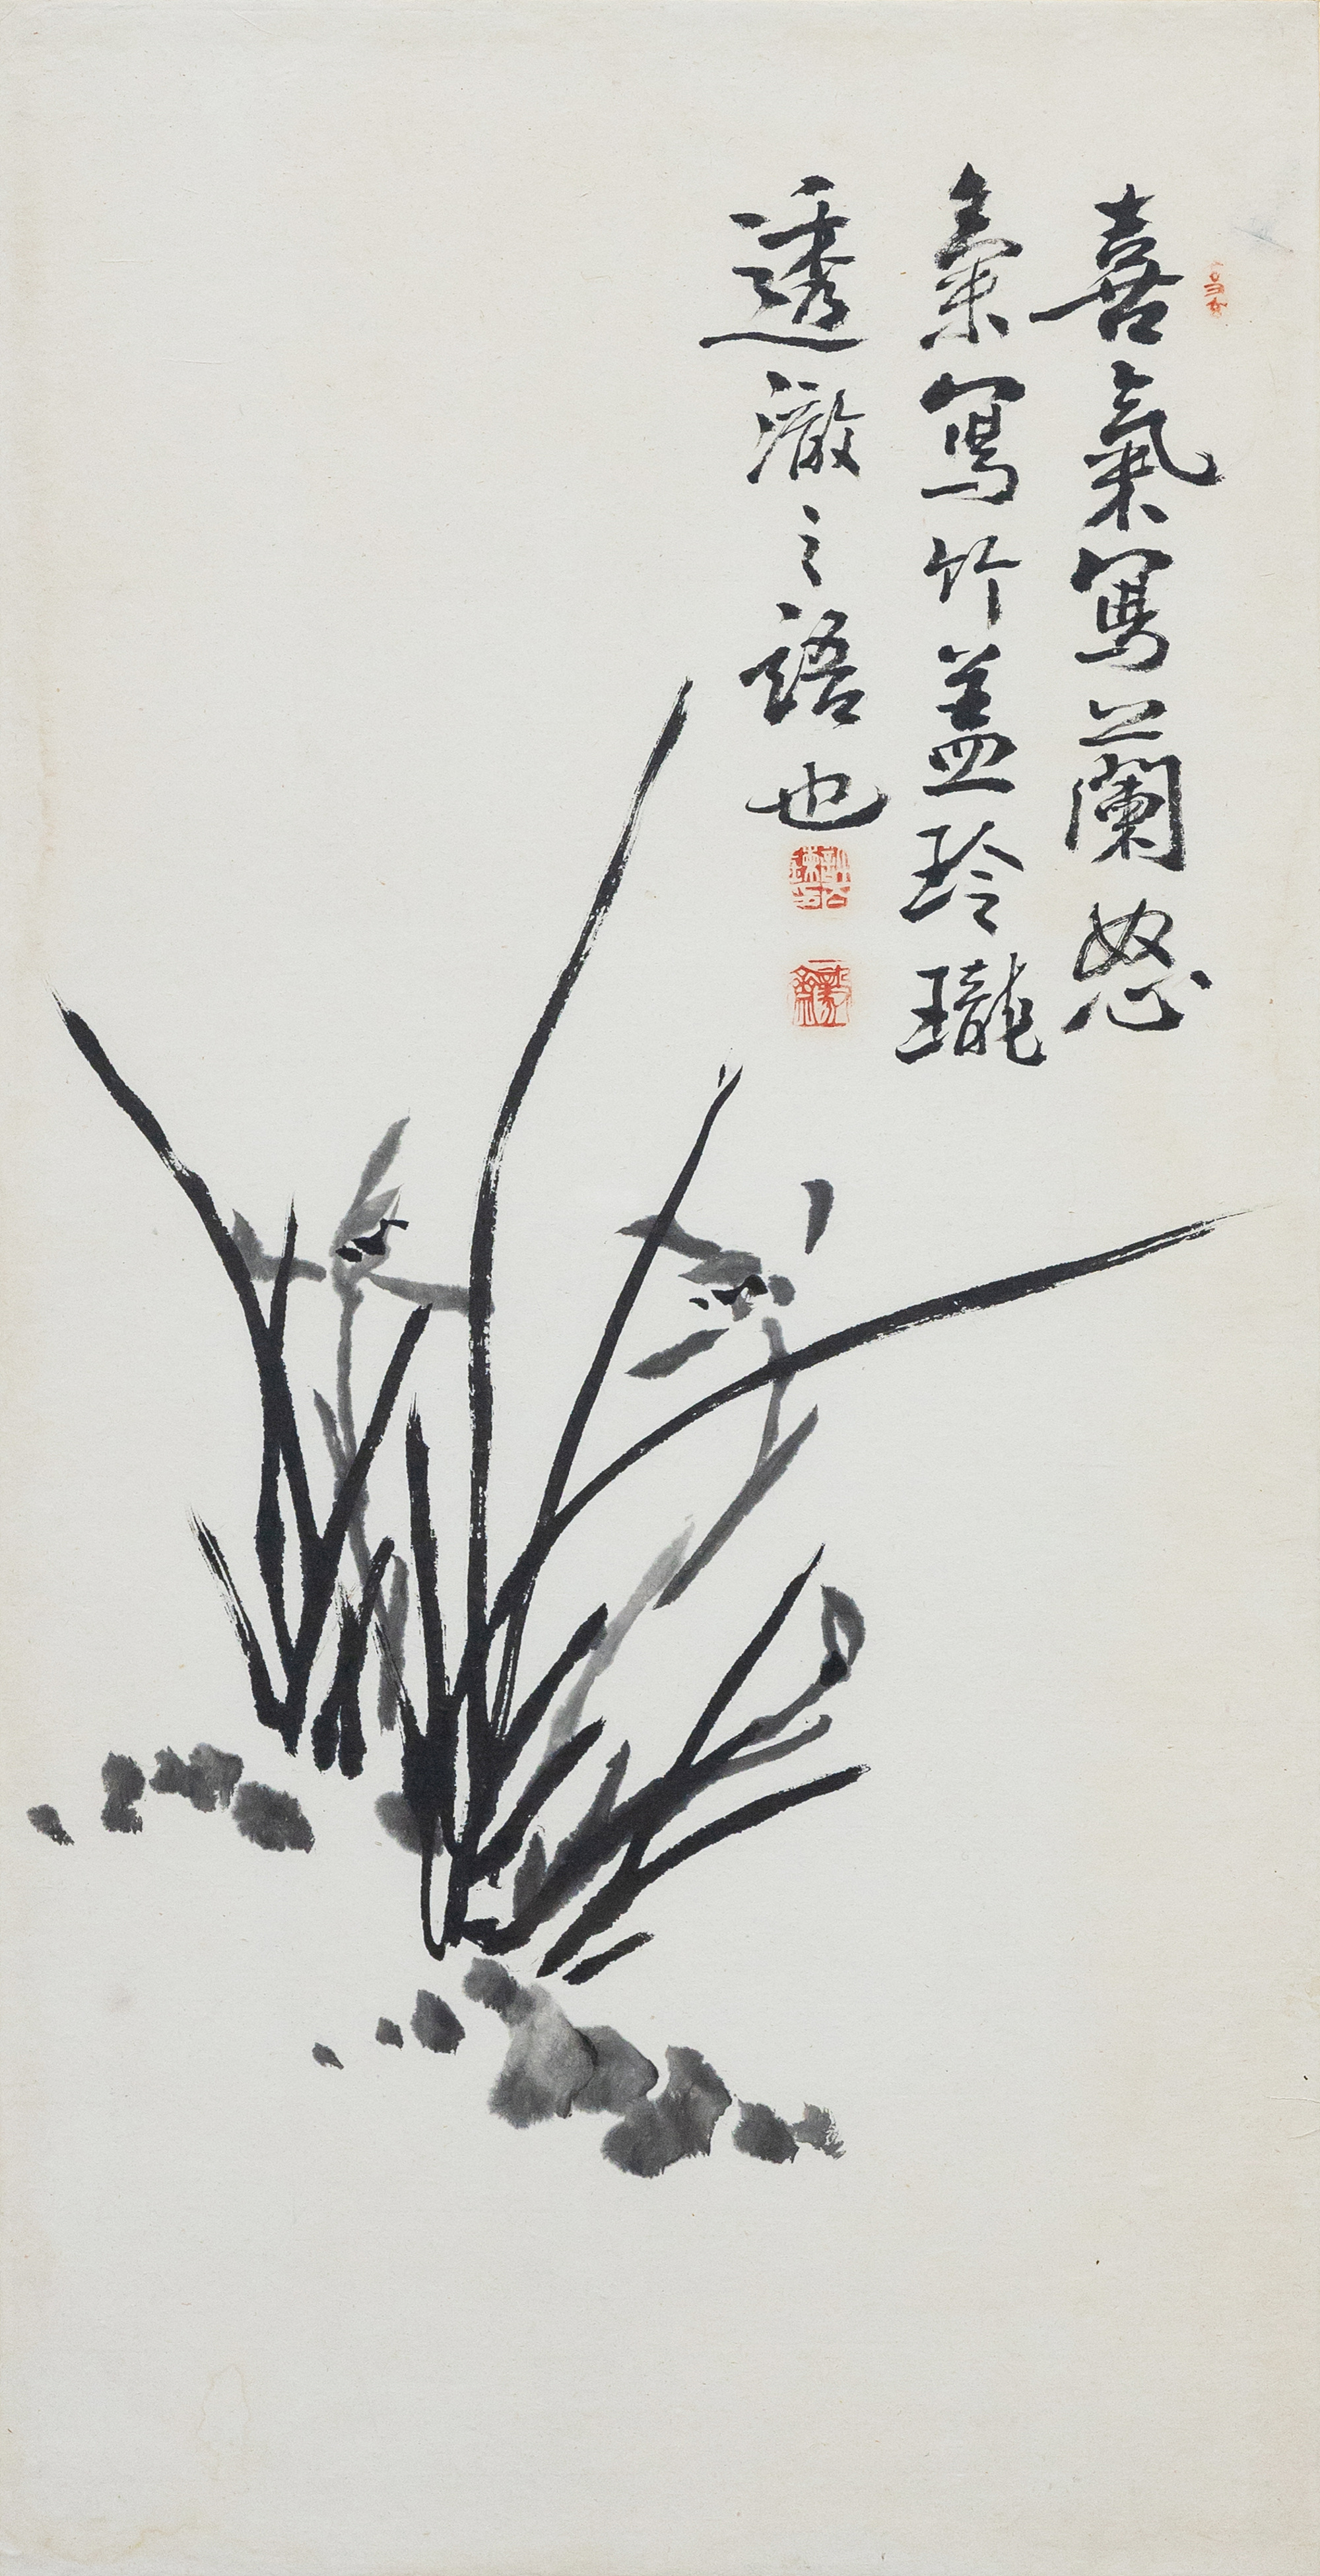 喜氣寫蘭怒
氣寫竹蓋玲瓏
透澈之語也